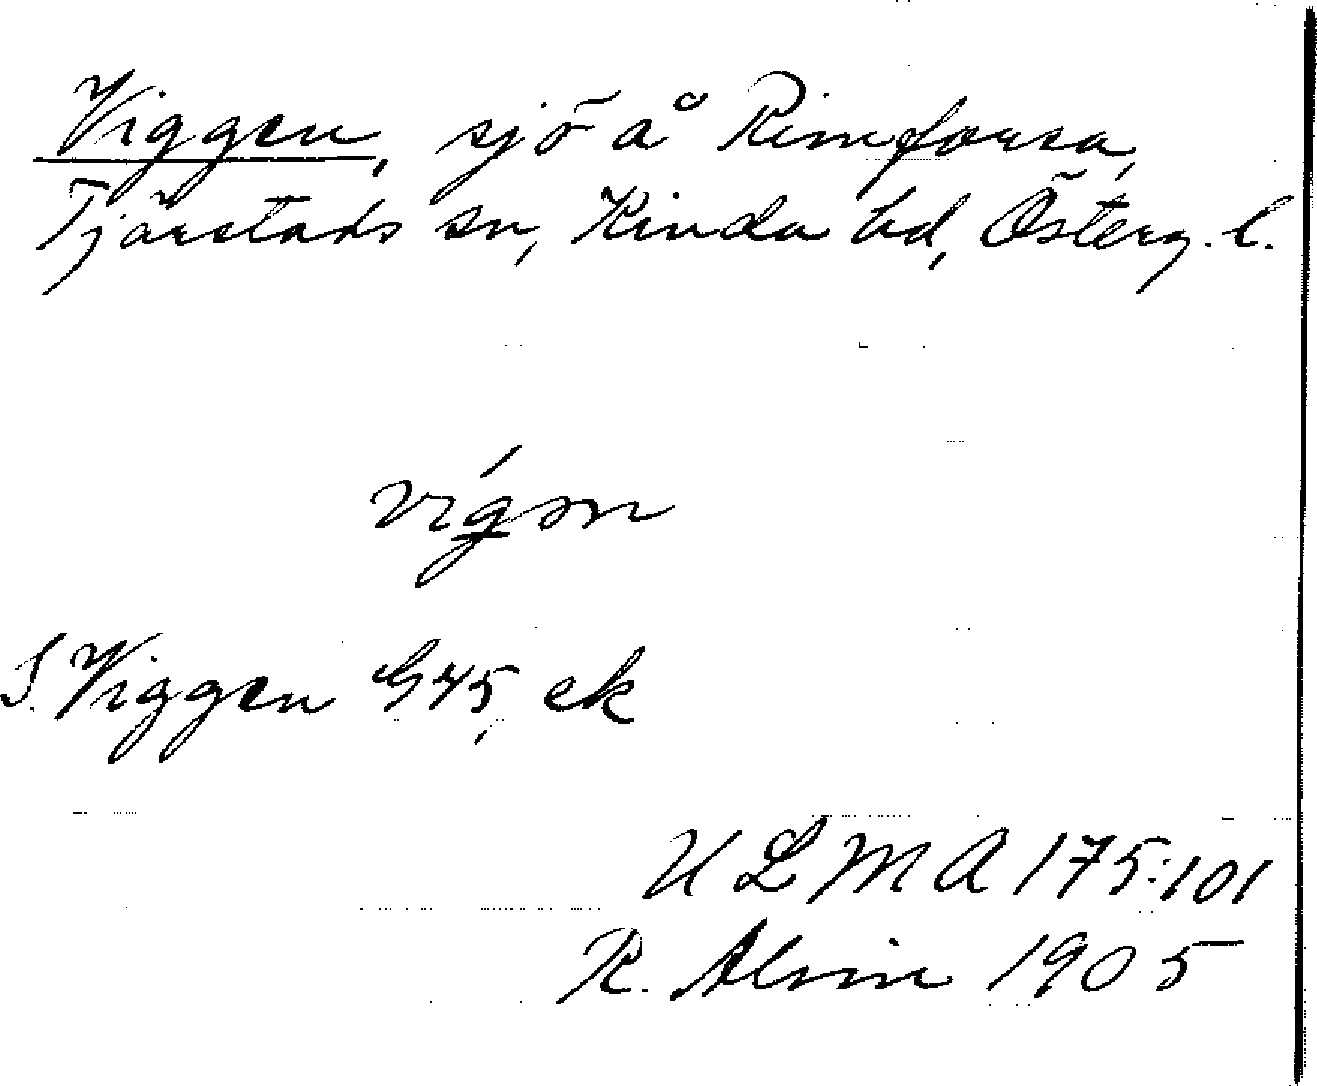 Viggen, sjö å Rimforsa,
Tjärstads sn, Kinda hd, Österg. l.
vígən
S. Viggen G45, ek
ULMA 175:101
R. Alvin 1905